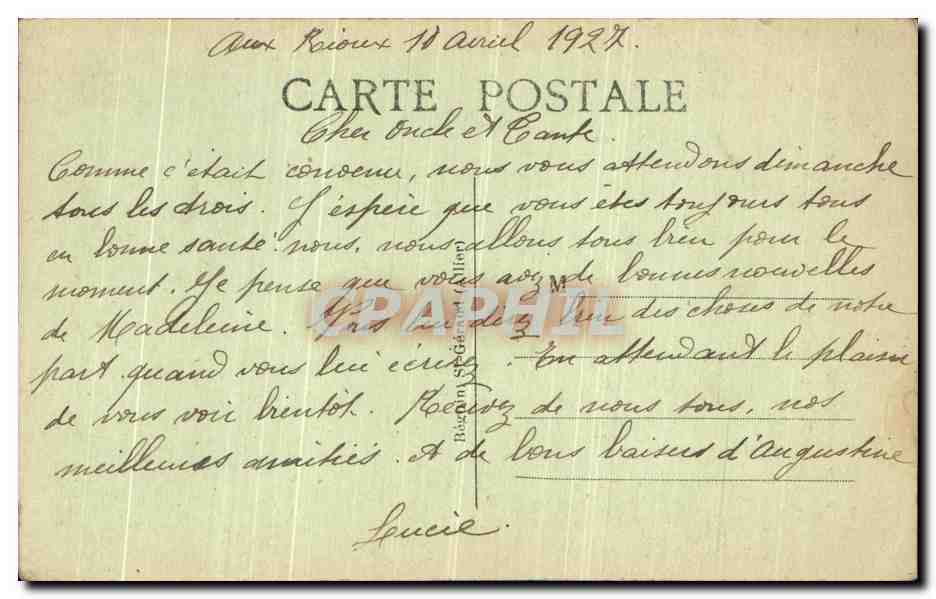 Aux Rioux 10 Avril 1927.
CARTE POSTALE
Cher Oncle et Tante.
Comme c'était convenu, nous vous attendons dimanche
tous les trois. J'espère que vous êtes toujours tous
en bonne santé. nous, nous allons tous bien pour le
moment. Je pense que vous avez de bonnes nouvelles
M
CPAPHIL
de Madeleine. Vous lui direz bien des choses de notre
part quand vous lui écrirez. En attendant le plaisir
de vous voir bientôt. Recevez de nous tous, nos
meilleures amitiés. Et de bons baisers d'Augustine
Lucie.
Béguin, St-Gérand (Allier)